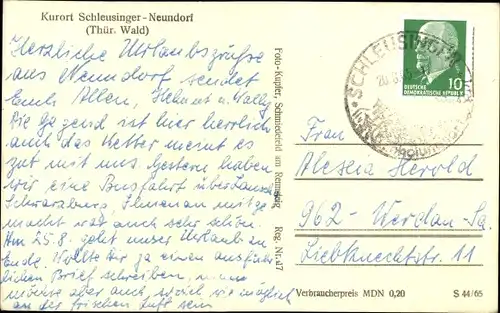 Kurort Schleusinger-Neundorf
(Thür. Wald)
Herzliche Urlaubsgrüße
aus Neundorf sendet
Euch Allen, Helmut u. Wally
Die Gegend ist hier herrlich
auch das Wetter meint es
gut mit uns. Gestern haben
wir eine Busfahrt über Lauscha
Schwarzburg, Ilmenau mitge
macht war auch sehr schön.
Am 25.8. geht unser Urlaub zu
Ende. Wollte Dir ja einen ausführ
lichen Brief schreiben,
möchte aber auch so viel wie möglich
an der frischen Luft sein
Foto-Kupfer, Schmiedefeld am Rennsteig Reg. Nr. 47
SCHLEUSINGER
10
DEUTSCHE
DEMOKRATISCHE REPUBLIK
Frau
Herold
962 - Werdau-Sa.
Liebknechtstr. 11
Verbraucherpreis MDN 0,20
S 44/65